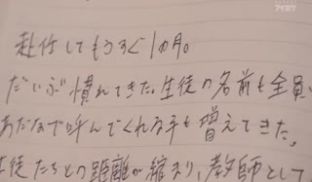 赴任してもうすぐ1ヵ月。
だいぶ慣れてきた。生徒の名前も全員、
あだなで呼んでくれる子も増えてきた。
徒たちとの距離が縮まり、教師として